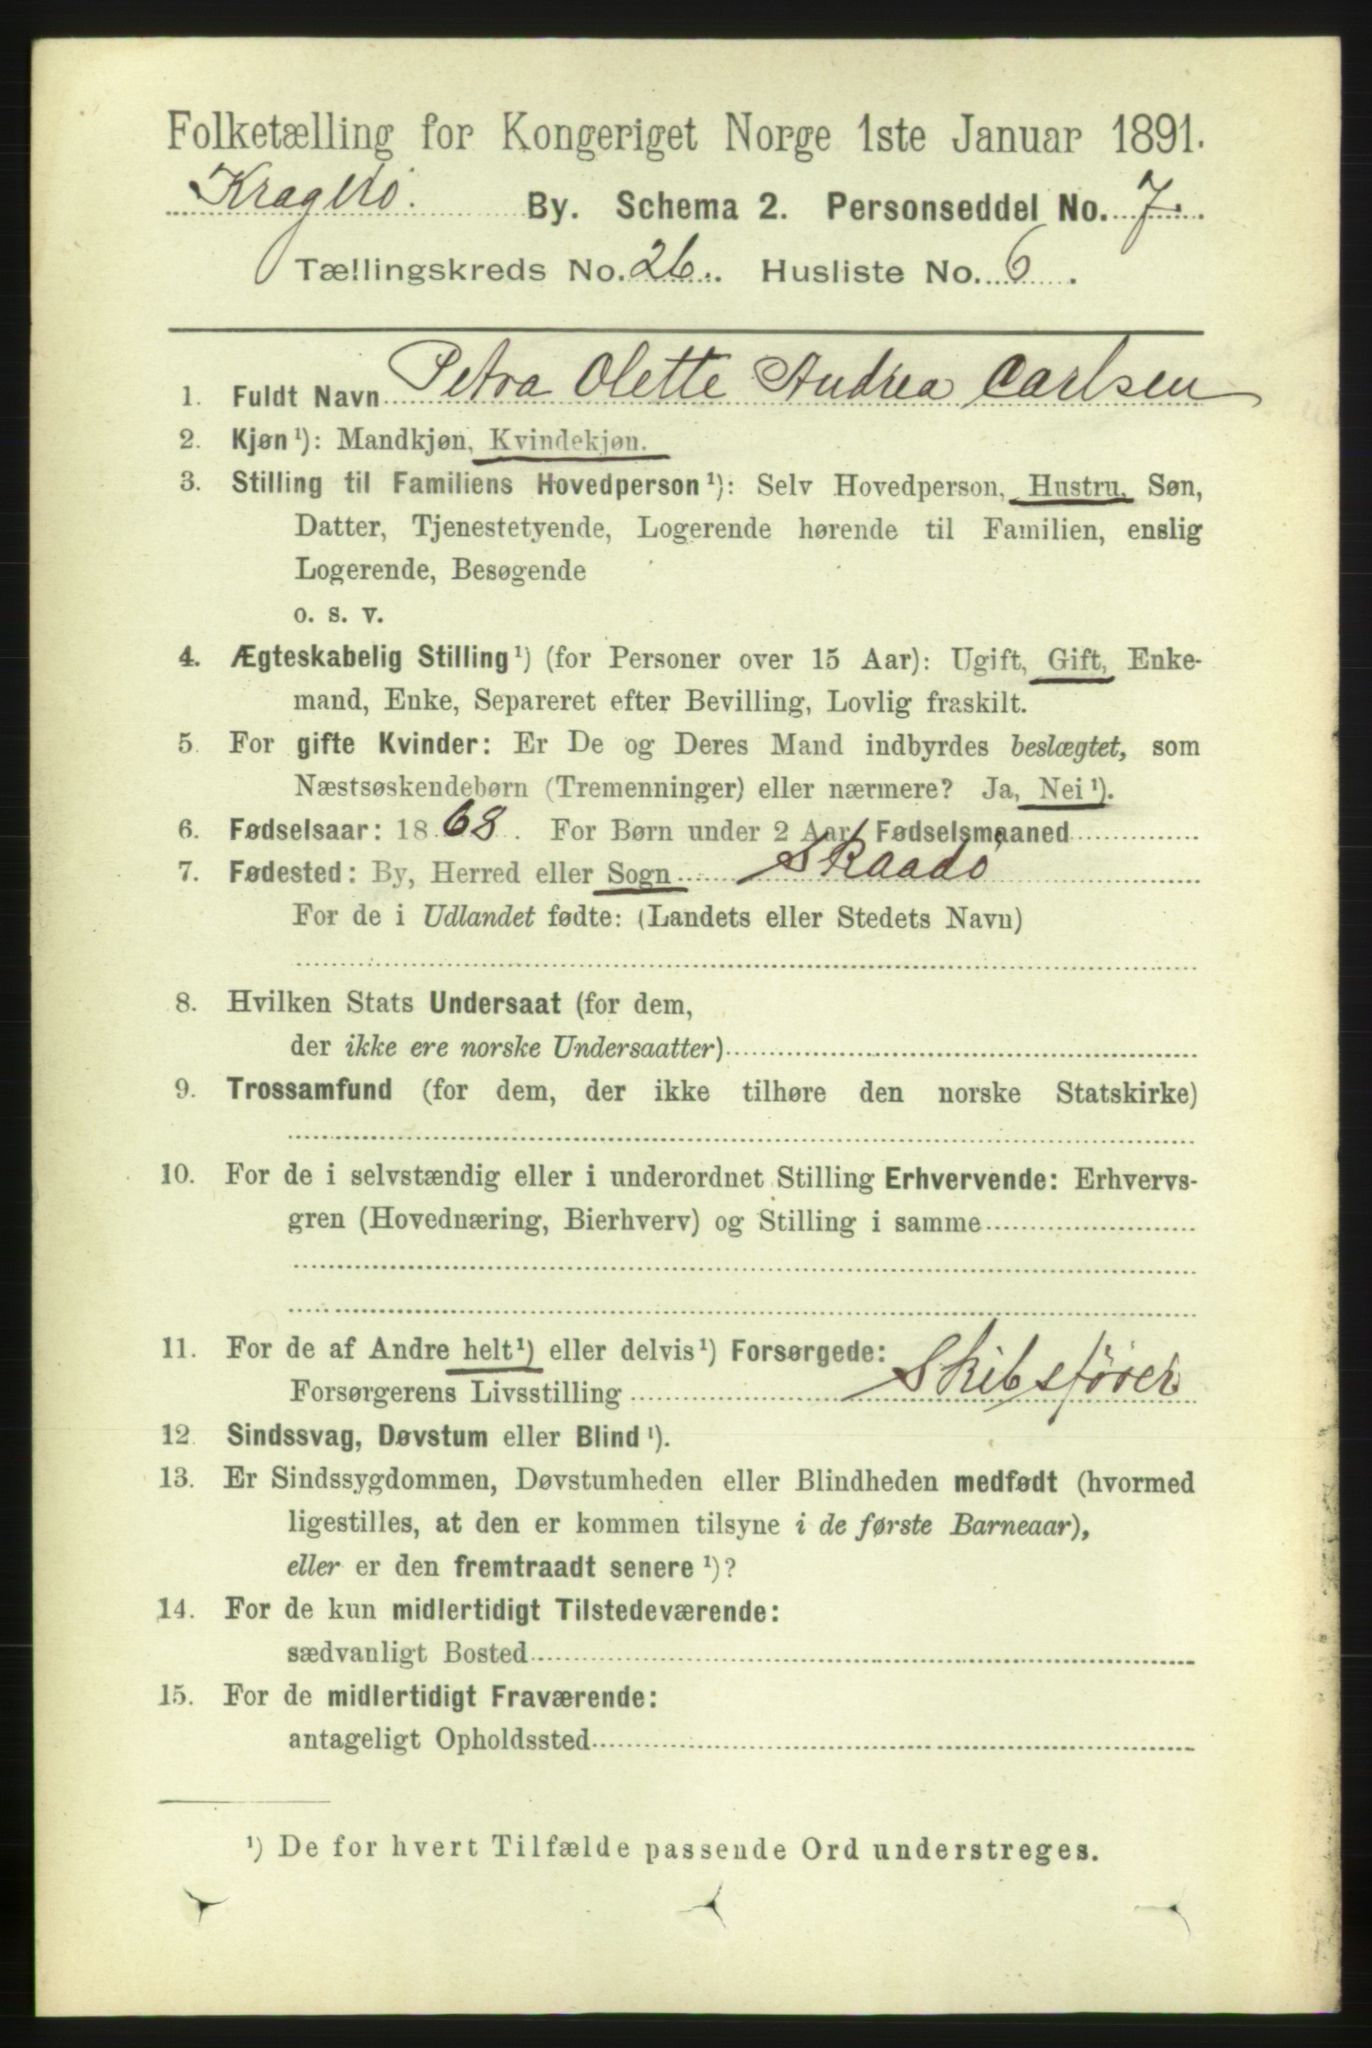 Folketælling for Kongeriget Norge 1ste Januar 1891.
Kragerø. By. Schema 2. Personseddel No. 7.
Tællingskreds No. 26. Husliste No. 6.
1. Fuldt Navn Petra Olette Andrea Carlsen
2. Kjøn¹): Mandkjøn, Kvindekjøn.
3. Stilling til Familiens Hovedperson¹): Selv Hovedperson, Hustru, Søn,
Datter, Tjenestetyende, Logerende hørende til Familien, enslig
Logerende, Besøgende
o. s. v.
4. Ægteskabelig Stilling¹) (for Personer over 15 Aar): Ugift, Gift, Enke-
mand, Enke, Separeret efter Bevilling, Lovlig fraskilt.
5. For gifte Kvinder: Er De og Deres Mand indbyrdes beslægtet, som
Næstsøskendebørn (Tremenninger) eller nærmere? Ja, Nei¹).
6. Fødselsaar: 1868. For Børn under 2 Aar, Fødselsmaaned
7. Fødested: By, Herred eller Sogn Skaadø
For de i Udlandet fødte: (Landets eller Stedets Navn)
8. Hvilken Stats Undersaat (for dem,
der ikke ere norske Undersaatter)
9. Trossamfund (for dem, der ikke tilhøre den norske Statskirke)
10. For de i selvstændig eller i underordnet Stilling Erhvervende: Erhvervs-
gren (Hovednæring, Bierhverv) og Stilling i samme
11. For de af Andre helt¹) eller delvis¹) Forsørgede:
Forsørgerens Livsstilling Skibsfører
12. Sindssvag, Døvstum eller Blind¹).
13. Er Sindssygdommen, Døvstumheden eller Blindheden medfødt (hvormed
ligestilles, at den er kommen tilsyne i de første Barneaar),
eller er den fremtraadt senere¹)?
14. For de kun midlertidigt Tilstedeværende:
sædvanligt Bosted
15. For de midlertidigt Fraværende:
antageligt Opholdssted
¹) De for hvert Tilfælde passende Ord understreges.